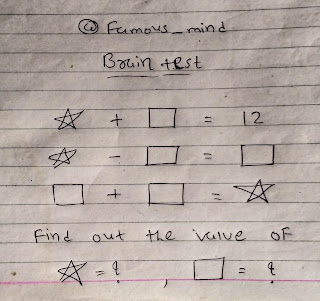 @ Famous_mind
Brain test
☆ + □ = 12
☆ - □ = □
□ + □ = ☆
Find out the value of
☆ = ? , □ = ?